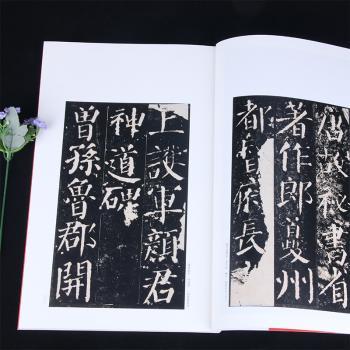 故秘書省
著作郎夔州
都督府長史
上護軍顏君
神道碑
曾孫魯郡開